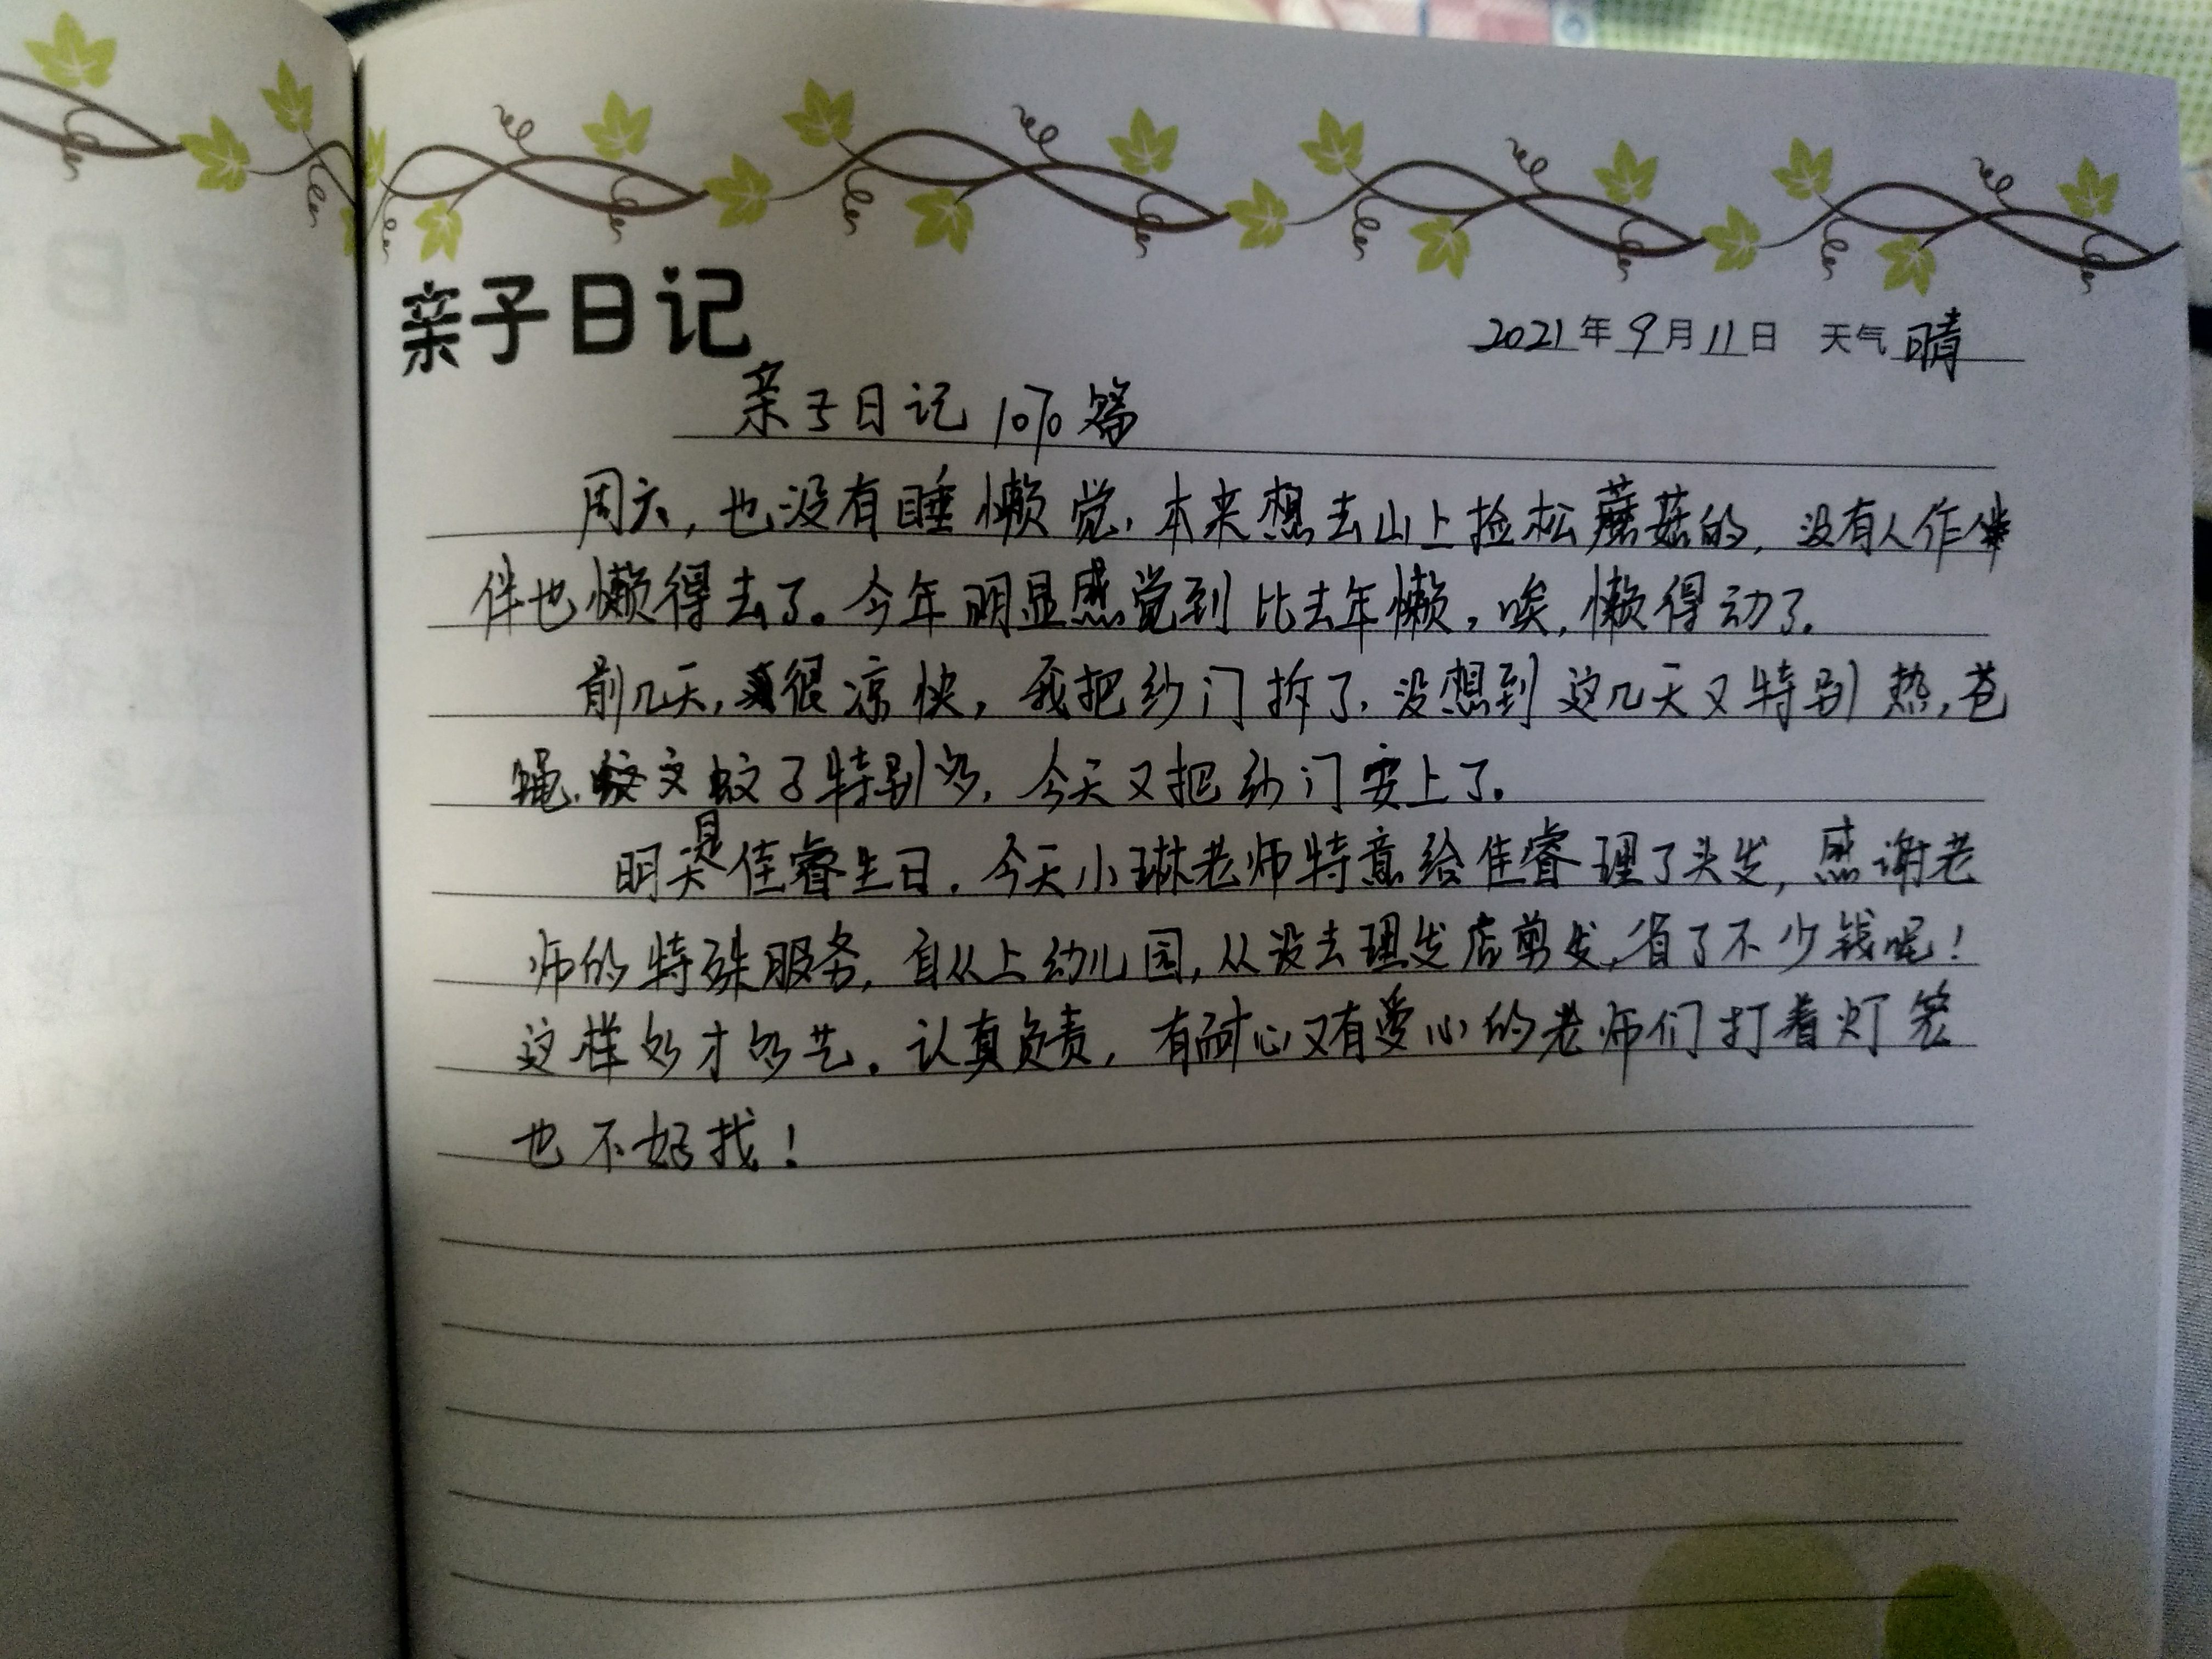 亲子日记
2021年9月11日 天气 晴
亲子日记1070篇
周六,也没有睡懒觉,本来想去山上捡松蘑菇的,没有人作
伴也懒得去了。今年明显感觉到比去年懒,唉,懒得动了。
前几天,很凉快,我把纱门拆了,没想到这几天又特别热,苍
蝇、蚊子特别多,今天又把纱门安上了。
明天是佳睿生日,今天小琳老师特意给佳睿理了头发,感谢老
师的特殊服务,自从上幼儿园,从没去理发店剪发,省了不少钱呢!
这样多才多艺,认真负责,有耐心又有爱心的老师们打着灯笼
也不好找!